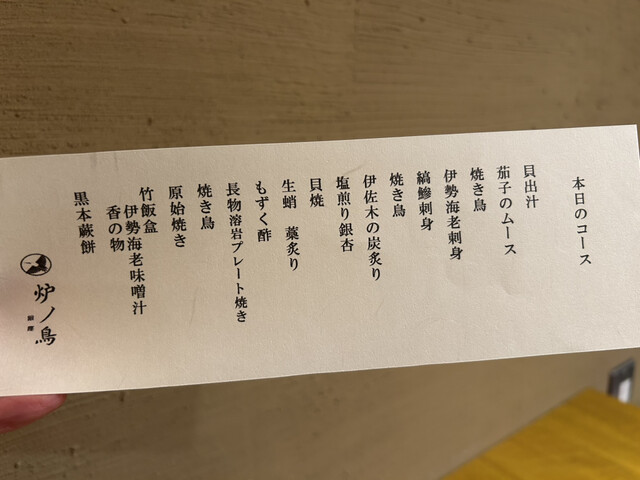 本日のコース
貝出汁
茄子のムース
焼き鳥
伊勢海老刺身
縞鯵刺身
焼き鳥
伊佐木の炭炙り
塩煎り銀杏
貝焼
生蛸 藁炙り
もずく酢
長物溶岩プレート焼き
焼き鳥
原始焼き
竹飯盒
伊勢海老味噌汁
香の物
黒本蕨餅
炉ノ鳥
銀座